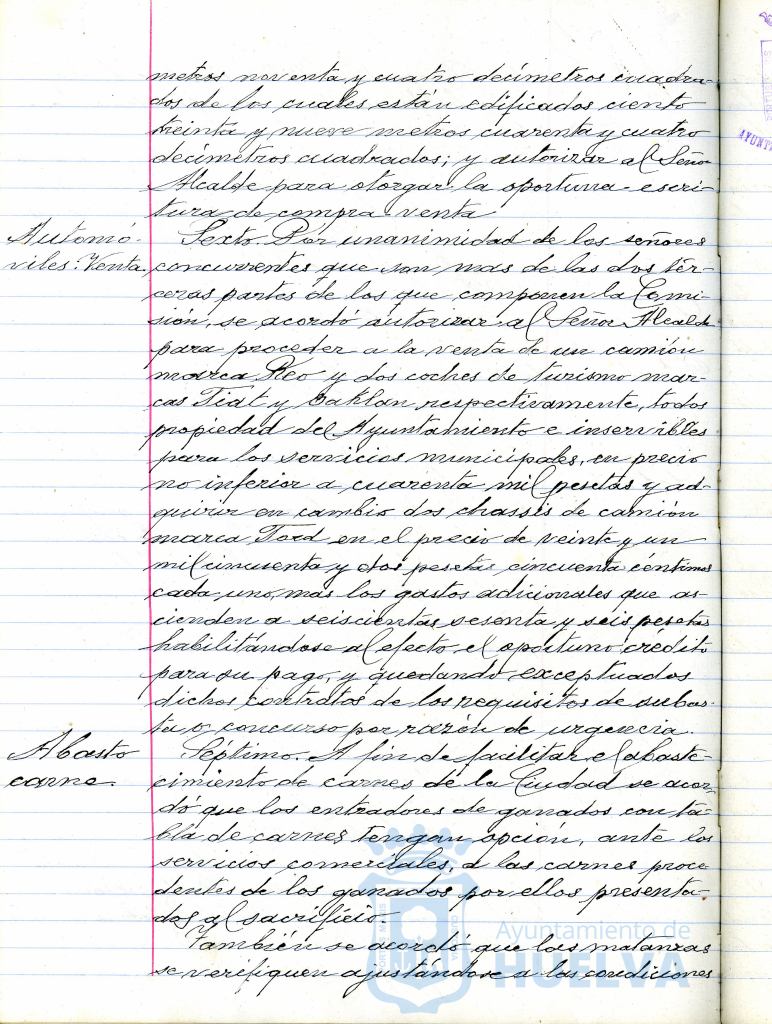 metros noventa y cuatro decímetros cuadra-
dos de los cuales están edificados ciento
treinta y nueve metros cuarenta y cuatro
decímetros cuadrados; y autorizar al Señor
Alcalde para otorgar la oportuna escri-
tura de compra-venta
Automó-
viles: Venta.
Sexto. Por unanimidad de los señores
concurrentes que son mas de las dos tér-
ceras partes de los que componen la Comi-
sión, se acordó autorizar al Señor Alcalde
para proceder a la venta de un camión
marca Reo y dos coches de turismo mar-
cas Fiat y Oaklan respectivamente, todos
propiedad del Ayuntamiento e inservibles
para los servicios municipales, en precio
no inferior a cuarenta mil pesetas y ad-
quirir en cambio dos chassis de camión
marca Ford en el precio de veinte y un
mil cincuenta y dos pesetas cincuenta céntimos
cada uno, mas los gastos adicionales que as-
cienden a seiscientas sesenta y seis pesetas
habilitándose al efecto el oportuno crédito
para su pago, y quedando exceptuados
dichos contratos de los requisitos de subas-
ta o concurso por razón de urgencia.
Abasto
carne.
Séptimo. A fin de facilitar el abaste-
cimiento de carnes de la Ciudad se acor-
dó que los entradores de ganados con ta-
bla de carnes tengan opción, ante los
servicios comerciales, a las carnes proce-
dentes de los ganados por ellos presenta-
dos al sacrificio.
También se acordó que las matanzas
se verifiquen ajustándose a las condiciones
Ayuntamiento de
HUELVA
AYUNT